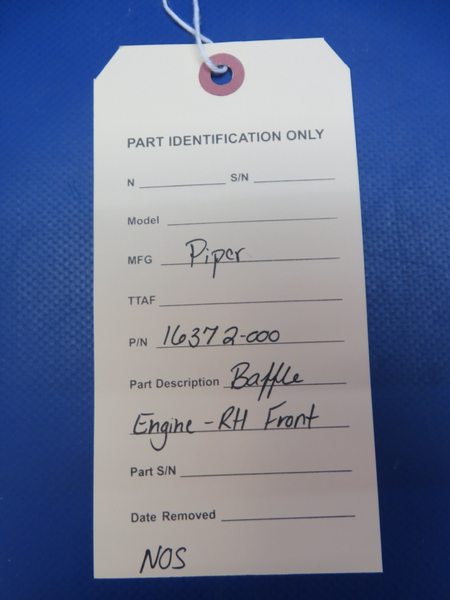 PART IDENTIFICATION ONLY
N S/N
Model
MFG Piper
TTAF
P/N 16372-000
Part Description Baffle
Engine - RH Front
Part S/N
Date Removed
NOS